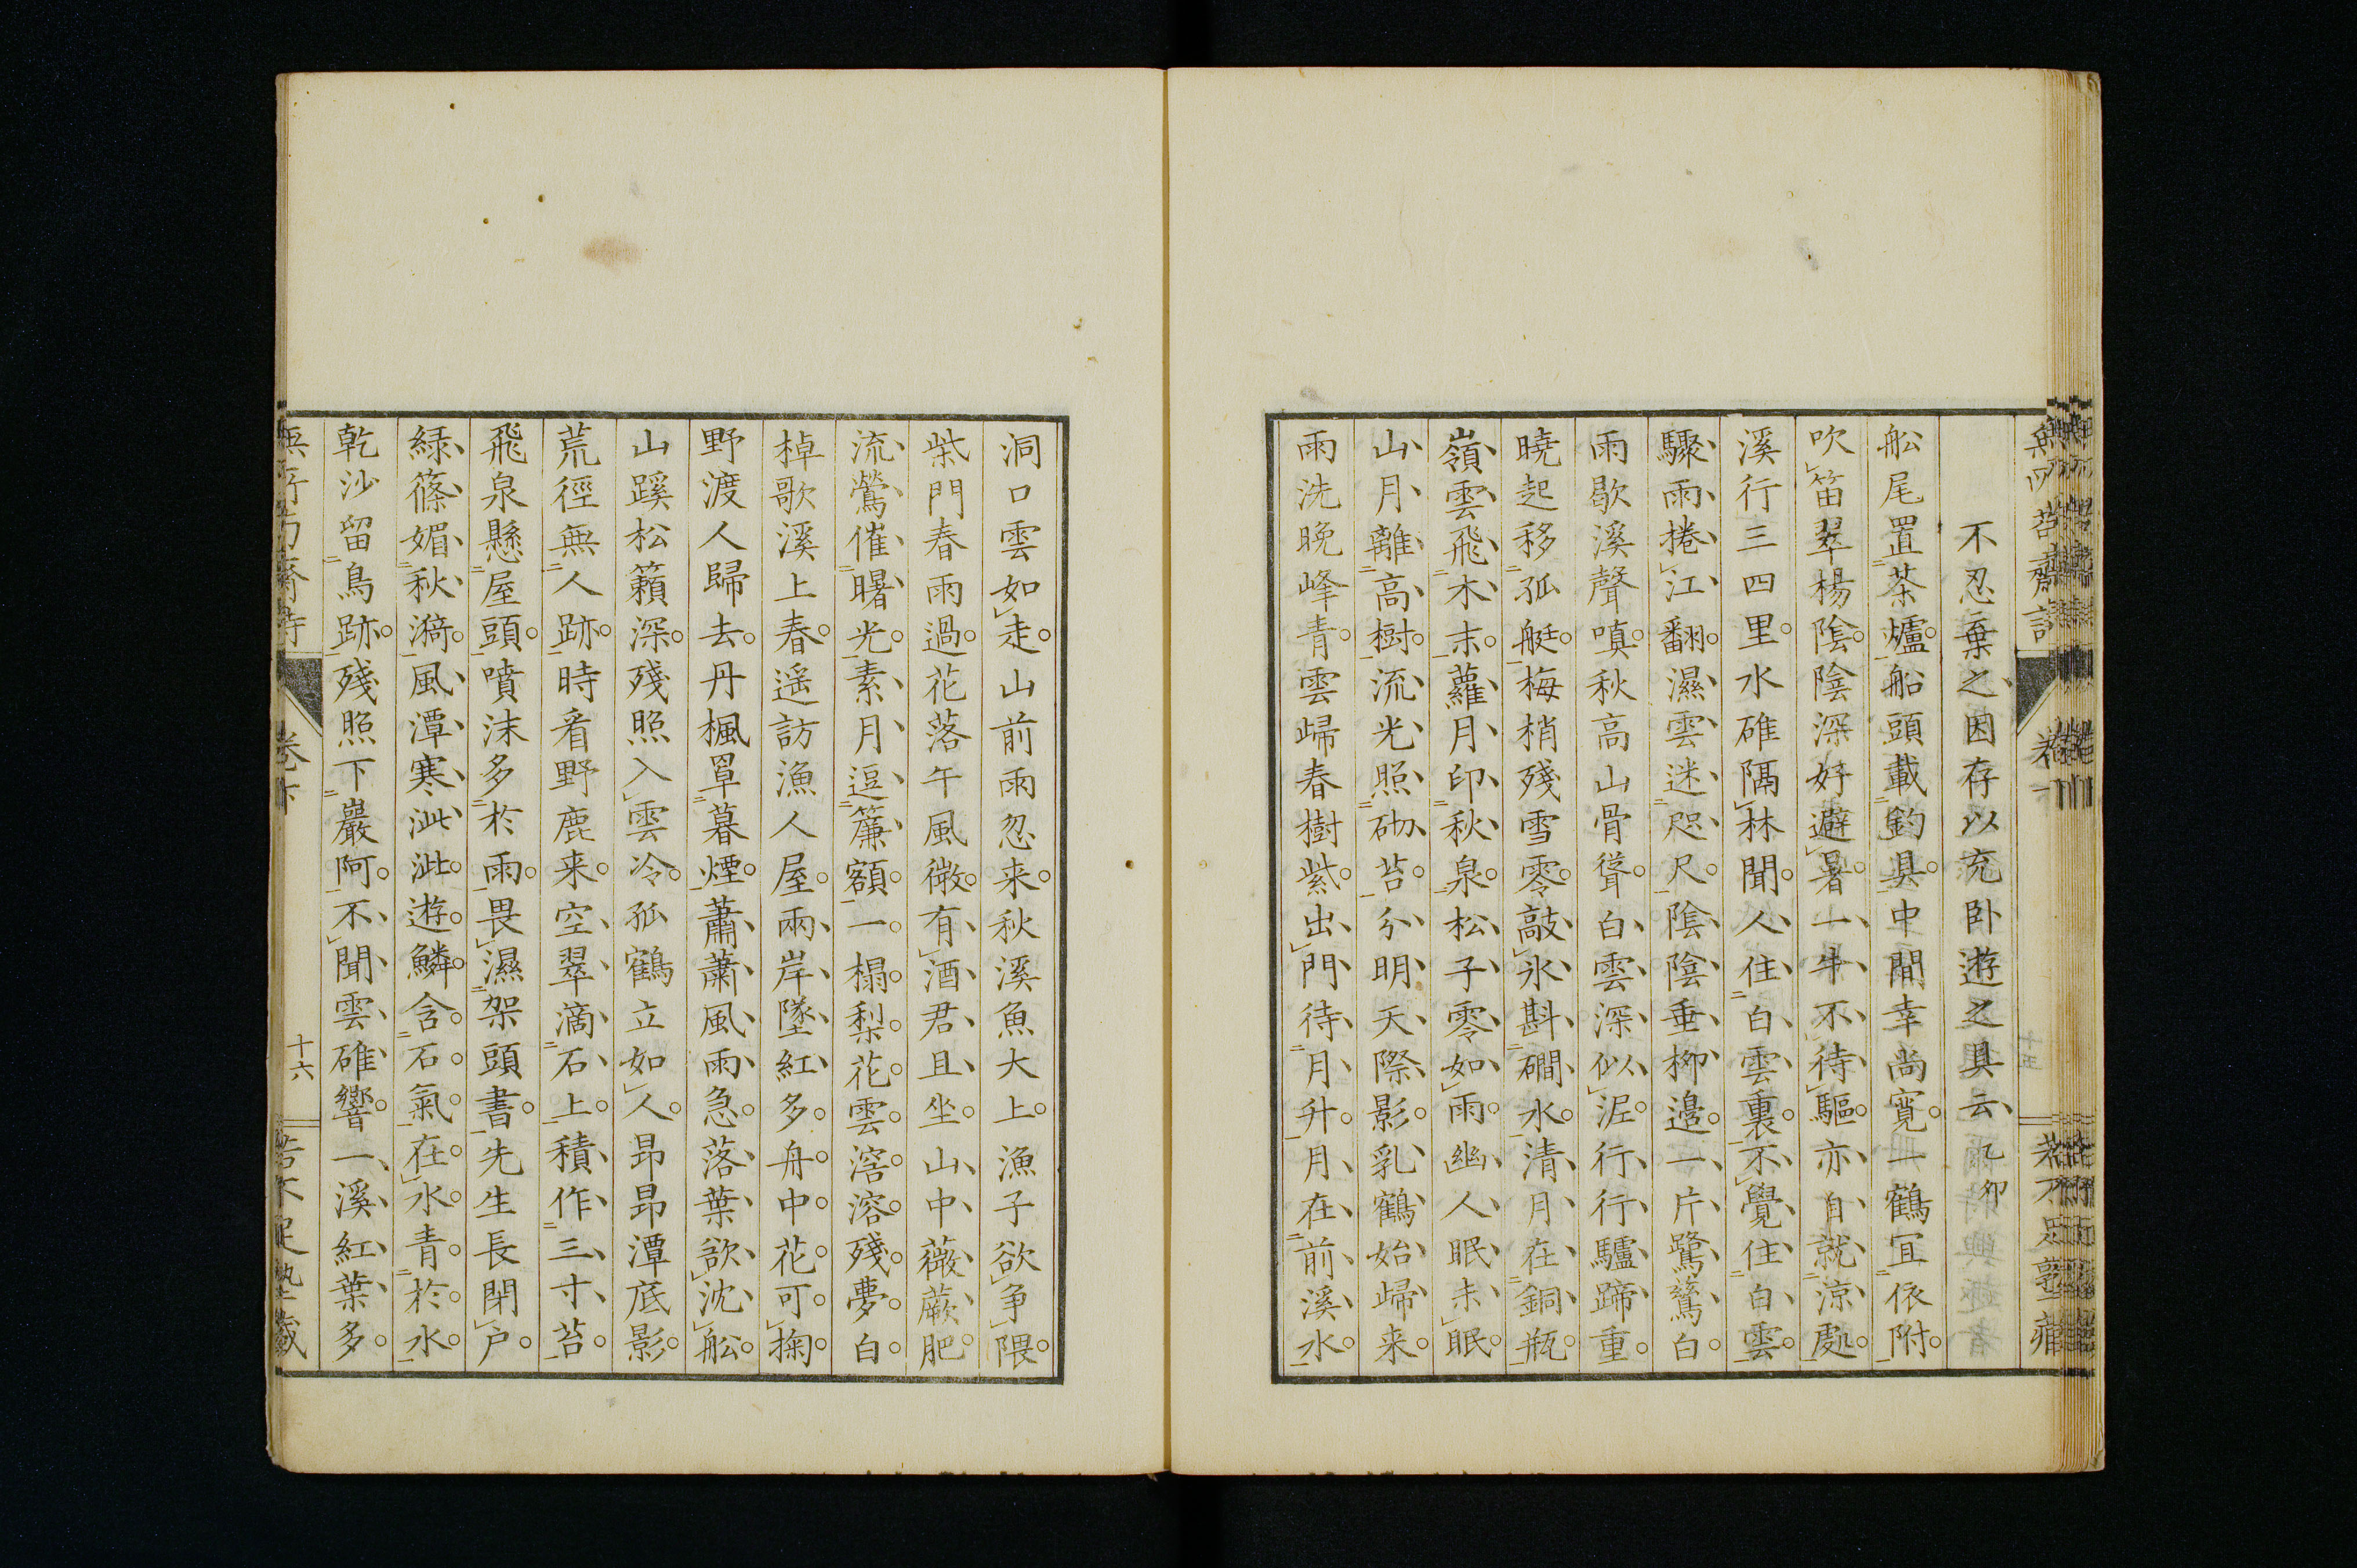 不忍棄之因存以充卧遊之具云乙卯
舩尾置茶爐船頭載釣具中間幸尚寛一鶴冝依附
吹笛翠楊陰陰深好避暑一牛不待驅亦自就涼處
溪行三四里水碓隔林聞人住白雲裏不覺住白雲
驟雨捲江翻濕雲迷咫尺陰陰垂柳邉一片鷺鷥白
雨歇溪聲嗔秋高山骨聳白雲深似泥行行驢蹄重
曉起移孤艇梅梢殘雪零敲氷斟磵水清月在銅瓶
嶺雲飛木末蘿月印秋泉松子零如雨幽人眠未眠
山月離高樹流光照砌苔分明天際影乳鶴始歸来
雨洗晩峰青雲歸春樹紫出門待月升月在前溪水
洞口雲如走山前雨忽来秋溪魚大上漁子欲争隈
柴門春雨過花落午風微有酒君且坐山中薇蕨肥
流鶯催曙光素月逗簾額一榻梨花雲溶溶殘夢白
棹歌溪上春遥訪漁人屋兩岸墜紅多舟中花可掬
野渡人歸去丹楓罩暮煙蕭蕭風雨急落葉欲沈舩
山蹊松籟深殘照入雲冷孤鶴立如人昂昂潭底影
荒徑無人跡時看野鹿来空翠滴石上積作三寸苔
飛泉懸屋頭噴沫多於雨畏濕架頭書先生長閉户
緑篠媚秋漪風潭寒泚泚遊鱗含石氣在水青於水
乾沙留鳥跡殘照下巖阿不聞雲碓響一溪紅葉多
卷下
十六